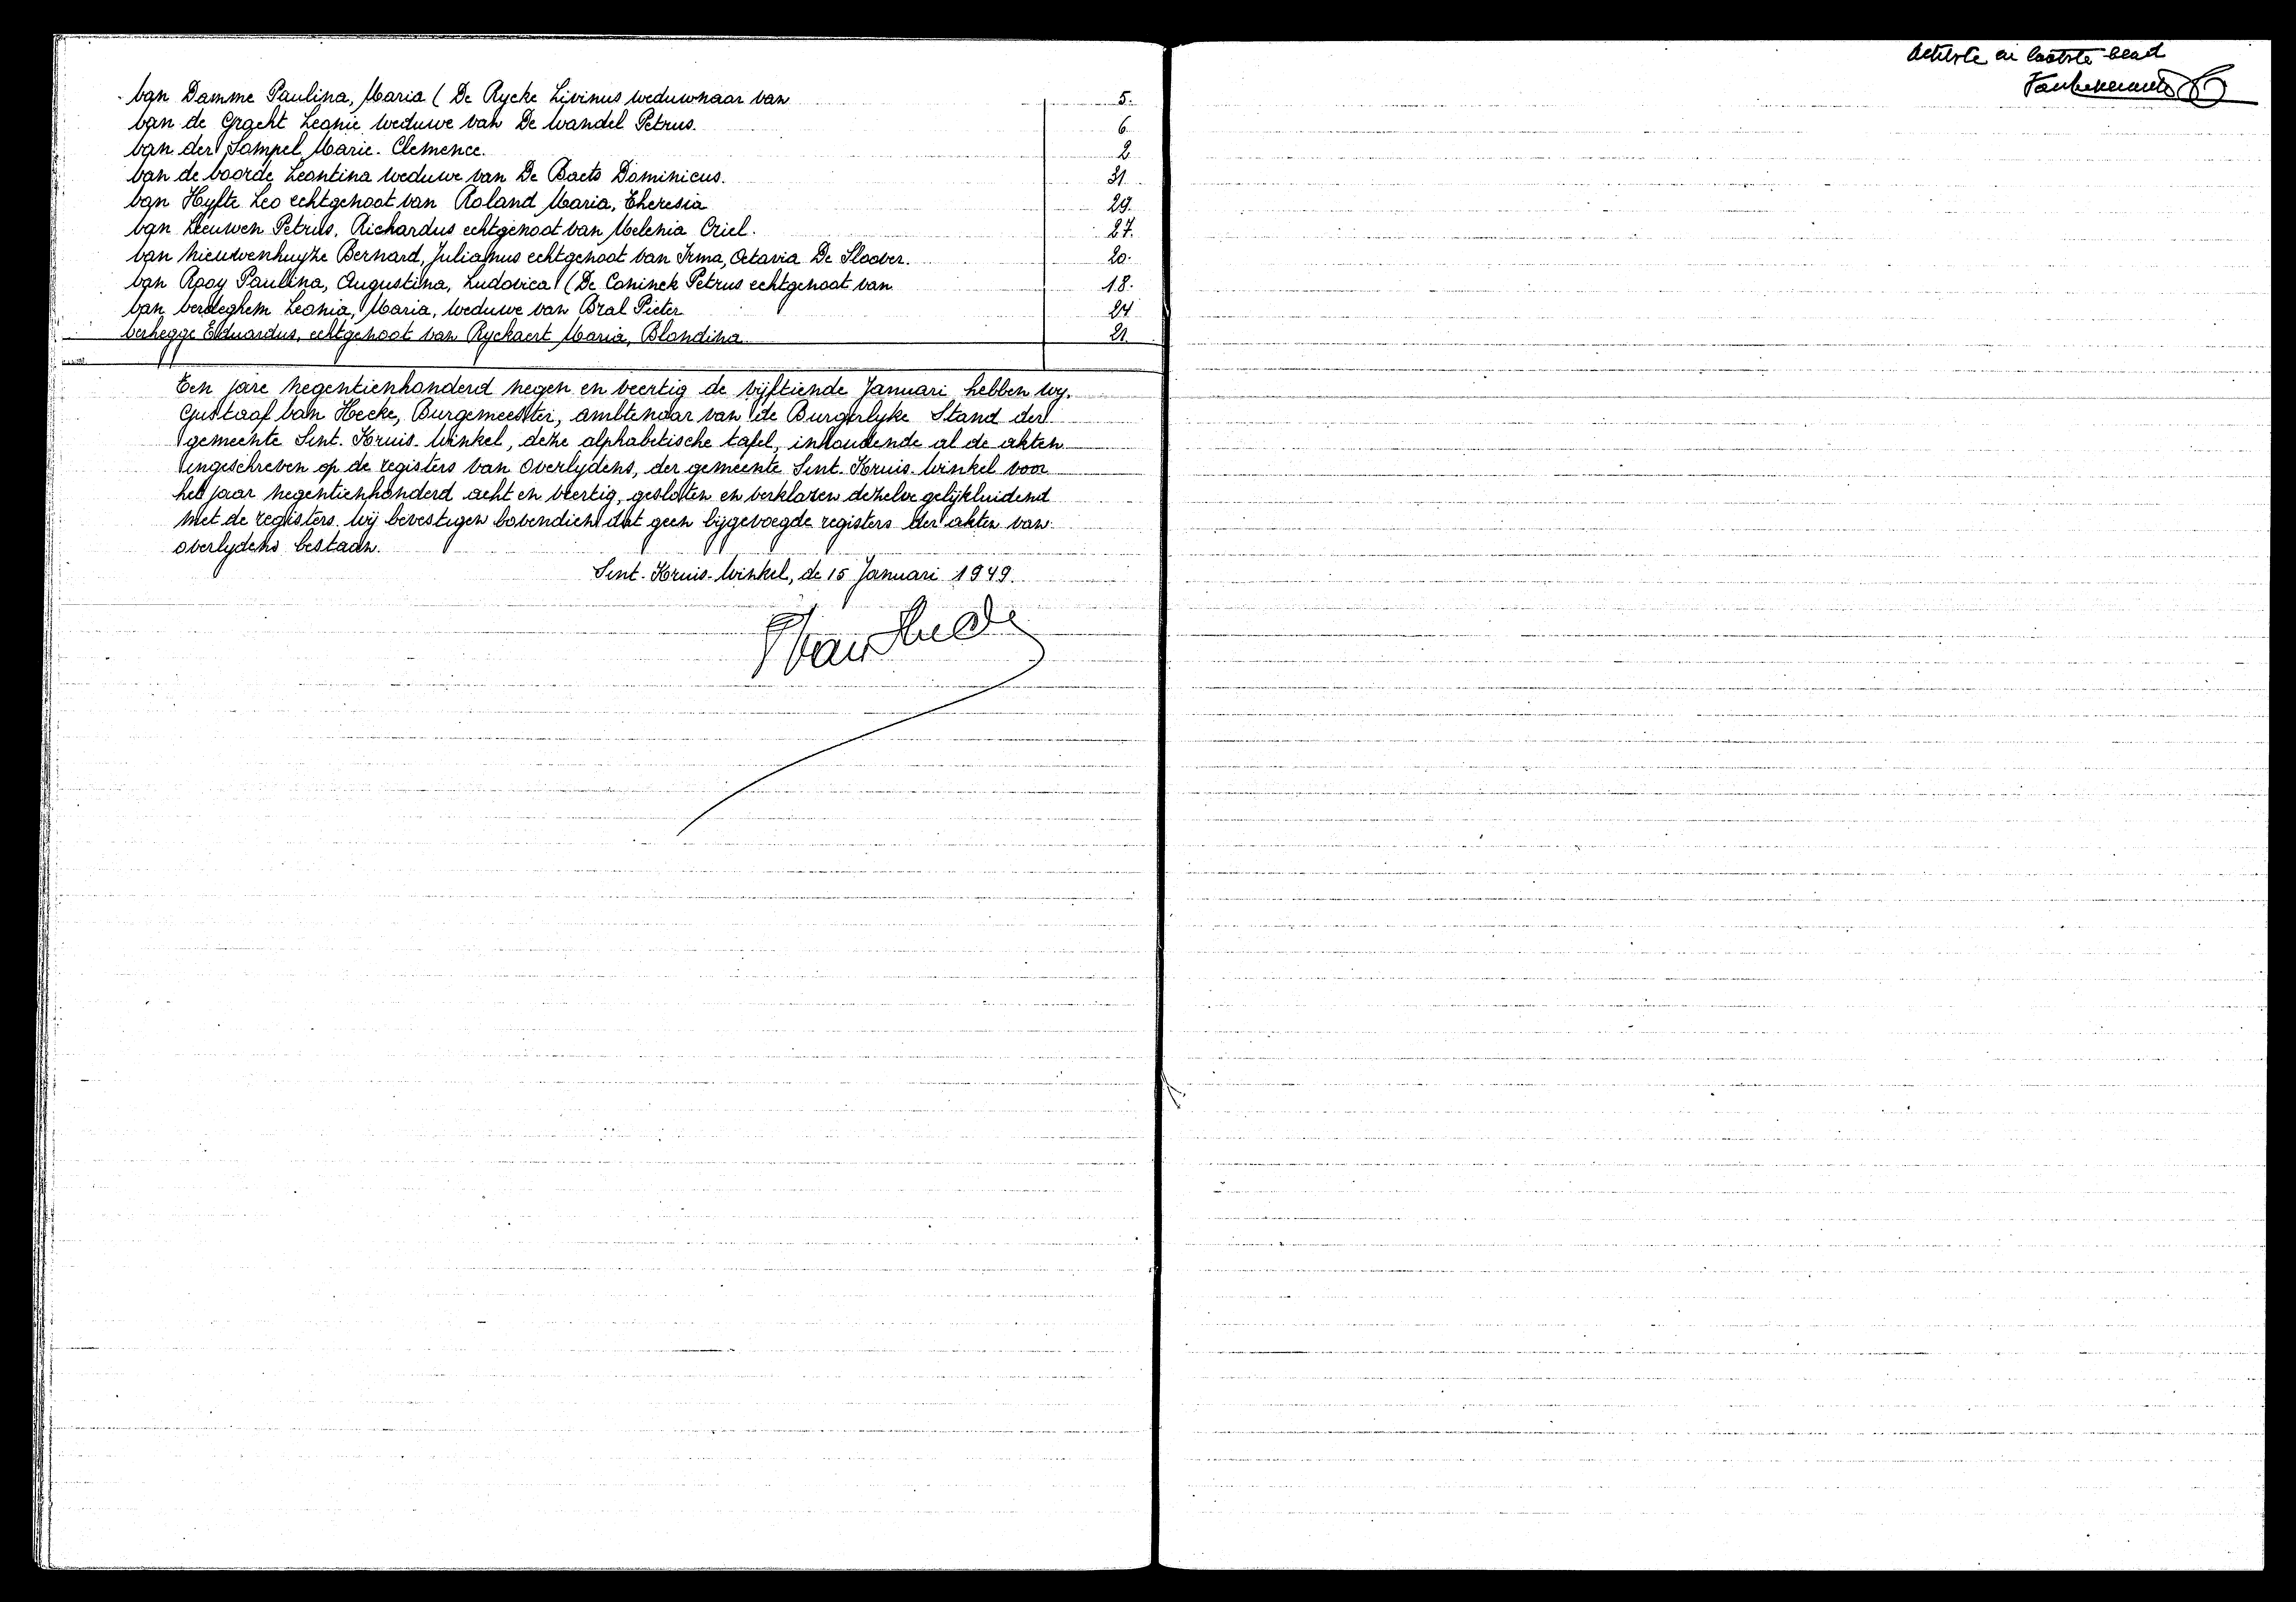 Van Damme Paulina, Maria (De Rycke Livinus weduwnaar van 5.
Van de Gracht Leonie weduwe van De Wandel Petrus. 6
Van der Sompel Marie-Clemence. 2
Van de Voorde Leontina weduwe van De Baets Dominicus. 31
Van Hyfte Leo echtgenoot van Roland Maria, Theresia 29.
Van Leeuwen Petrus, Richardus echtgenoot van Melenia Criel. 27.
Van Nieuwenhuyze Bernard, Julianus echtgenoot van Irma, Octavia De Sloover. 20.
Van Rooy Paulina, Augustina, Ludovica (De Coninck Petrus echtgenoot van 18.
Van Verdeghem Leonia, Maria, weduwe van Bral Pieter 24
Verhegge Eduardus, echtgenoot van Ryckaert Maria, Blondina 21.
Ten jare negentienhonderd negen en veertig de vijftiende Januari hebben wy.
Gustaaf Van Hecke, Burgemeester, ambtenaar van de Burgerlyke Stand der
gemeente Sint-Kruis-Winkel, deze alphabetische tafel, inhoudende al de akten
ingeschreven op de registers van overlydens, der gemeente Sint-Kruis-Winkel voor
het jaar negentienhonderd acht en veertig, gesloten en verklaren dezelve gelijkluidend
met de registers. Wij bevestigen bovendien dat geen bijgevoegde registers der akten van
overlydens bestaan.
Sint-Kruis-Winkel, de 15 Januari 1949.
Van Hecke
Achtste en laatste blad